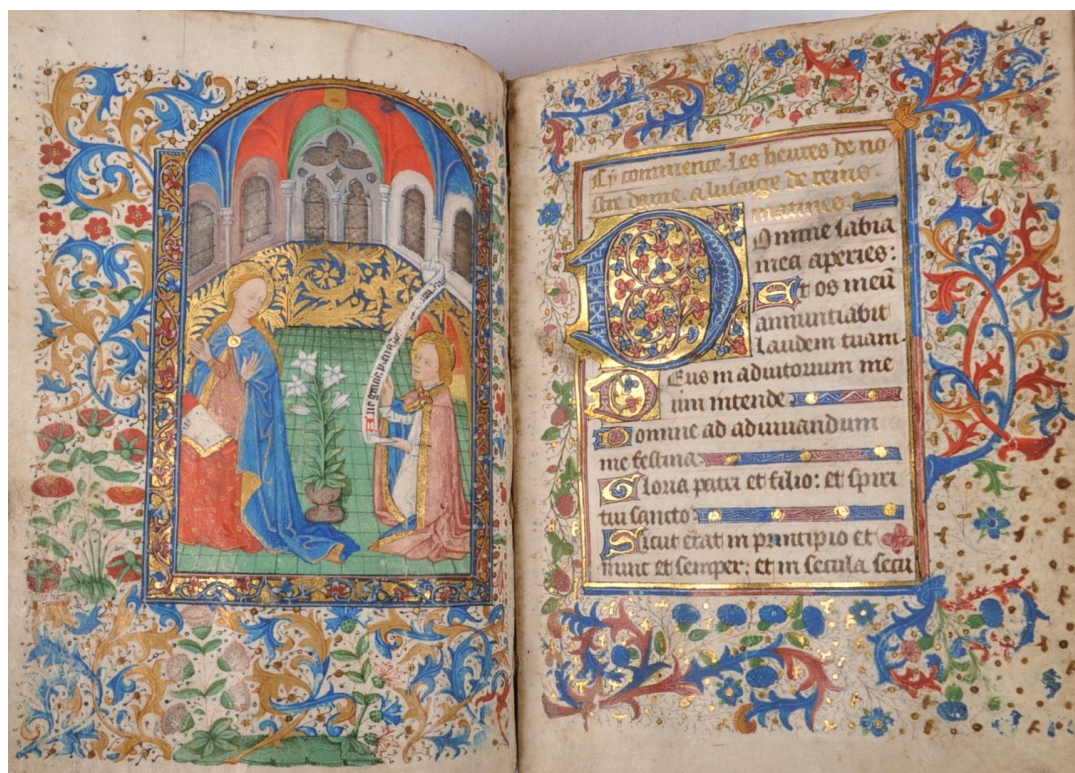 Aue gracia plena
Cy commence les heures de no
stre dame a lusaige de reins.
matines.
Domine labia
mea aperies:
Et os meū
annuntiabit
laudem tuam.
Deus in adiutorium me
um intende
Domine ad adiuuandum
me festina
Gloria patri et filio: et spiri
tui sancto
Sicut erat in principio et
nunc et semper: et in secula secu